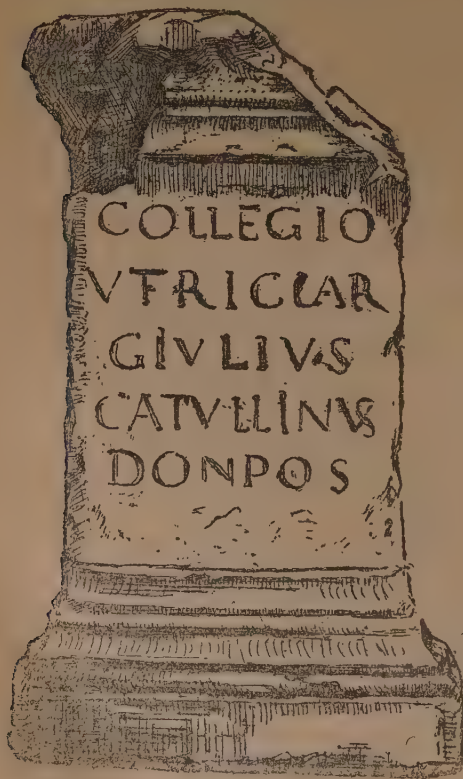 COLLEGIO
VTRICLAR
GIVLIVS
CATVLLINVS
DONPOS